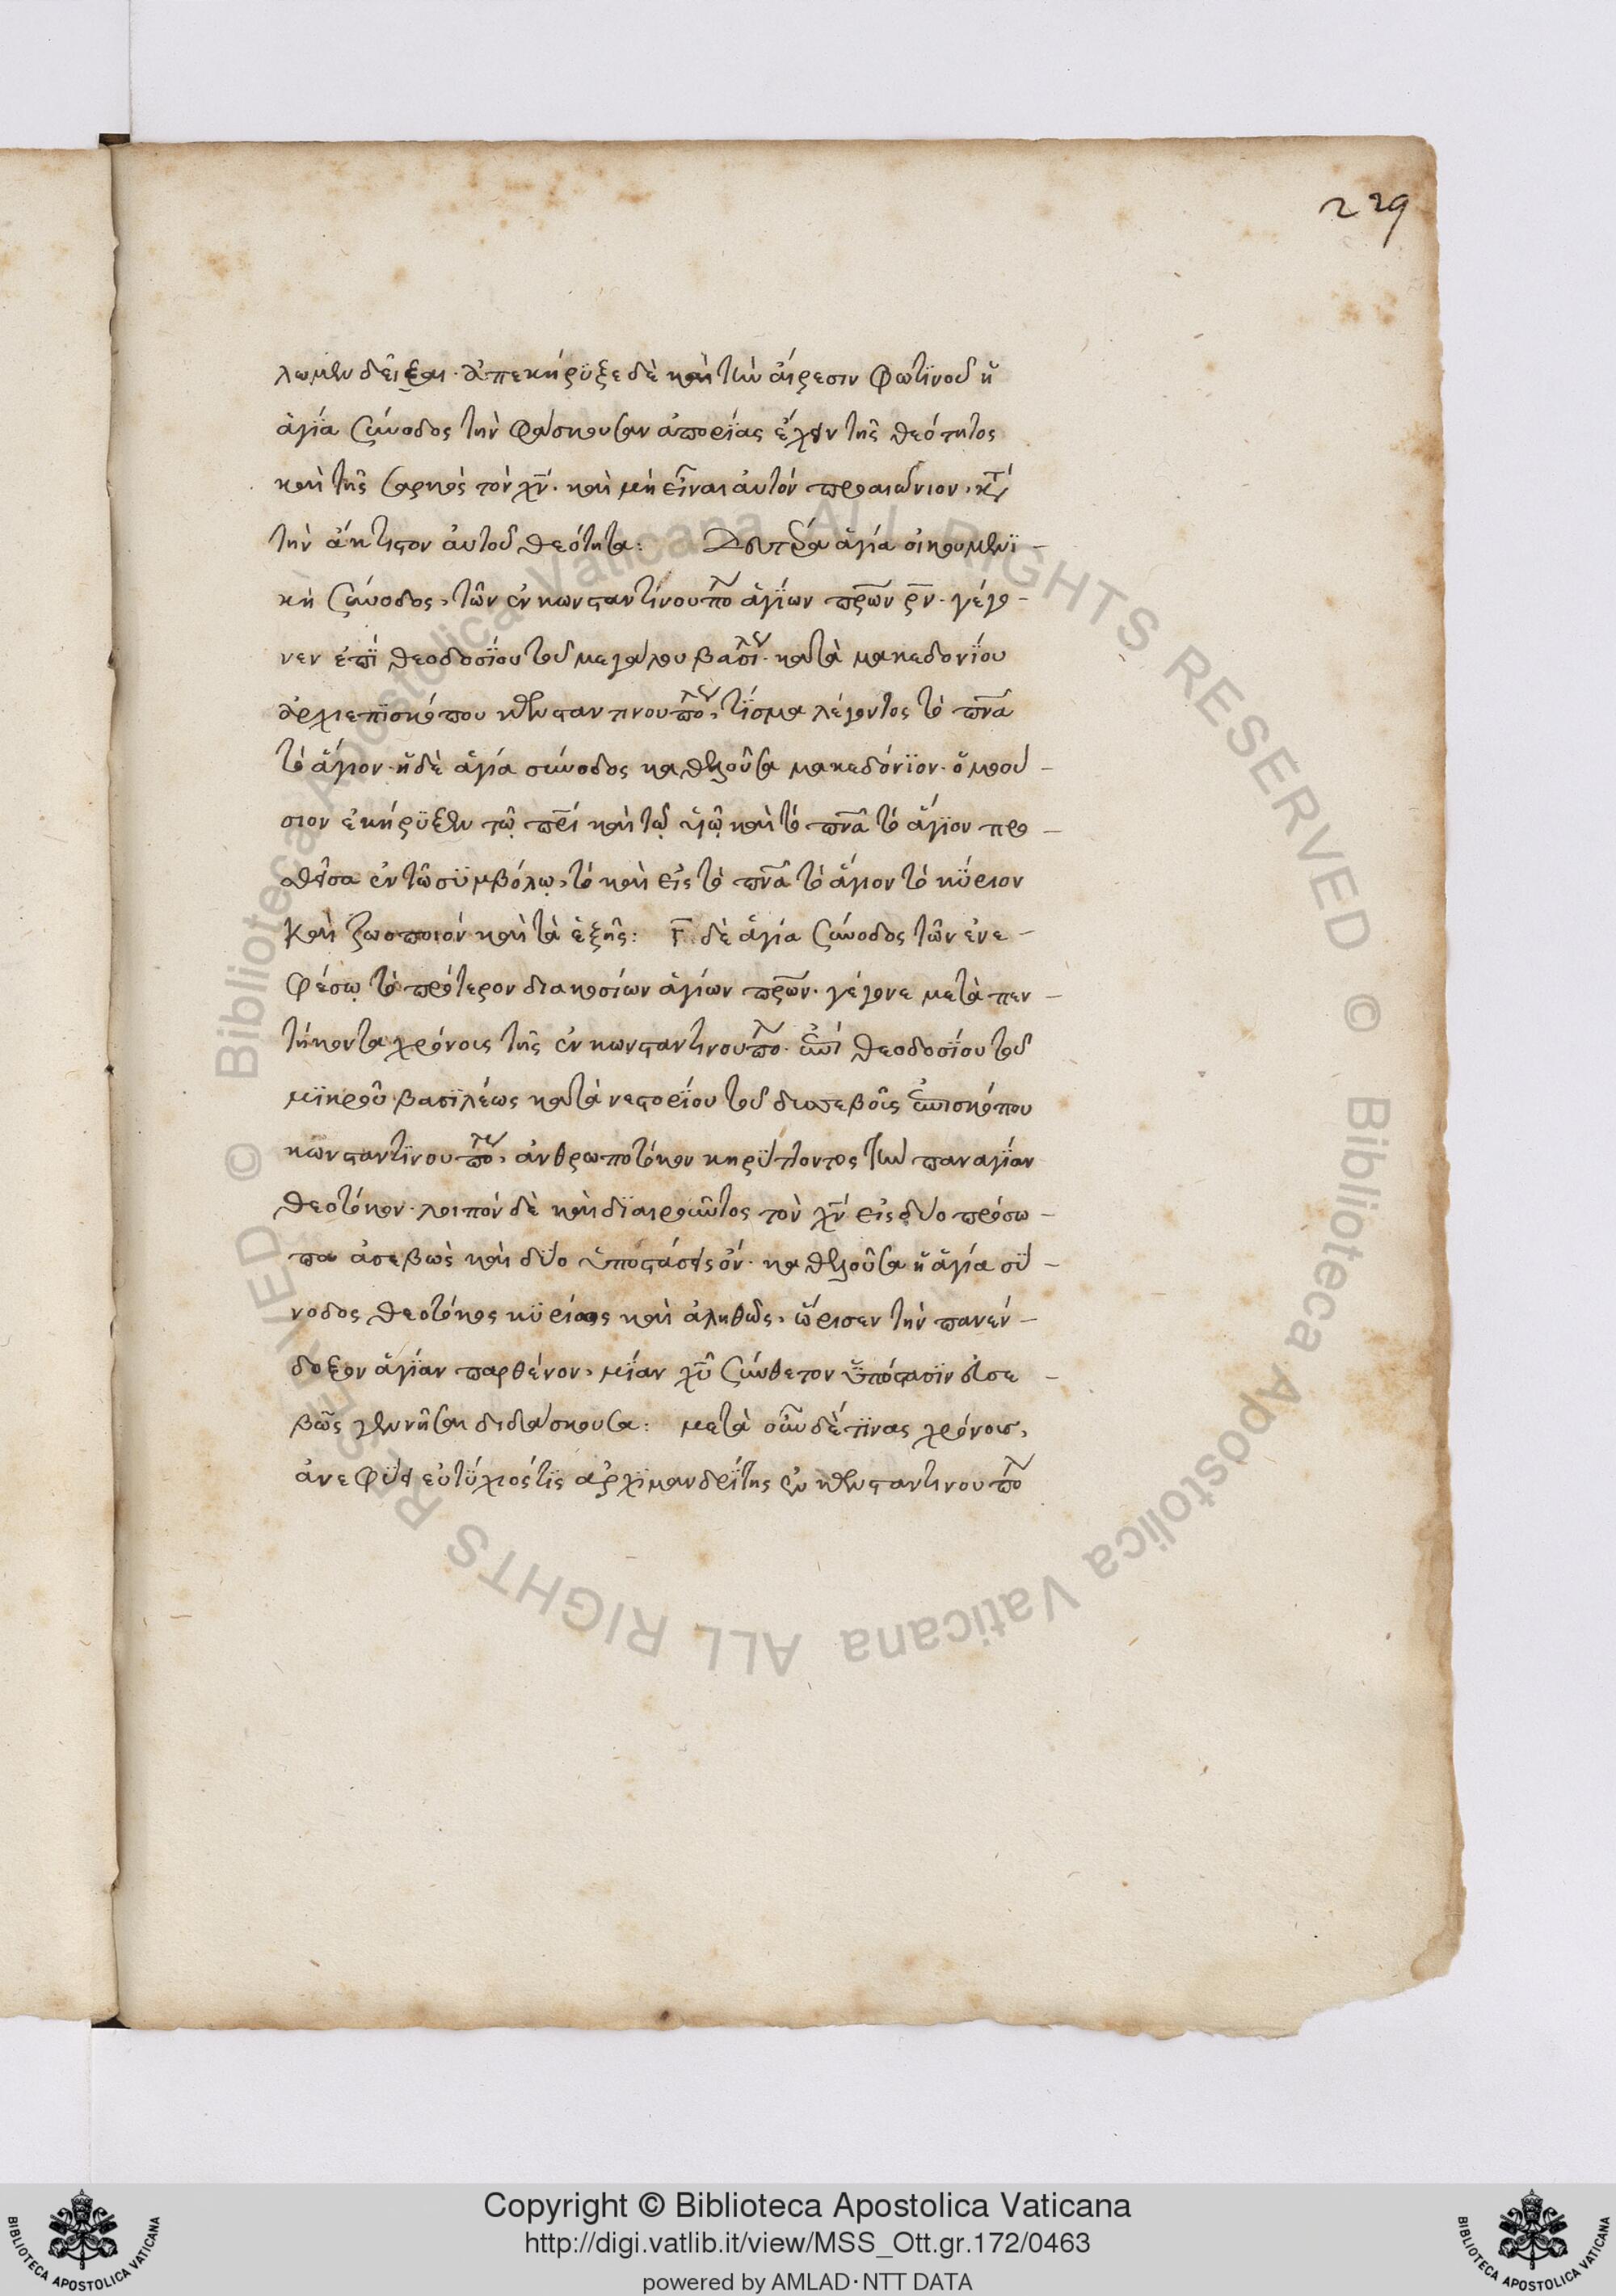 229
λωμεν δεῖξαι· ἀπεκήρϋξε δὲ καὶ τὴν αἵρεσιν Φωτϊνοῦ ἡ
ἁγία σύνοδος τὴν φάσκουσαν ἀπορίας ἔχειν τῆς θεότητος
καὶ τῆς σαρκὸς τὸν χν̅· καὶ μὴ εἶναι αὐτὸν προαιώνιον,
τὴν ἄκτιστον αὐτοῦ θεότητα: Δευτέρα ἁγία οἰκουμενϊ-
κὴ σύνοδος, τῶν ἐν κωνσταντίνουπο ἁγΐων πρων ρν· γέγο-
νεν ἐπῒ θεοδοσΐου τοῦ μεγάλου βασι· κατὰ μακεδονΐου
ἀρχιεπϊσκόπου κωνσταντινουπο, τΐσμα λέγοντος τὸ πνα
τὸ ἅγιον· ἡ δὲ ἁγία σύνοδος καθελοῦσα μακεδόνϊον· ὁμοού-
σιον ἐκήρϋξεν τῷ πρι καὶ τῷ υἱῷ καὶ τὸ πνα τὸ ἅγϊον προ-
θεῖσα ἐν τῶ σϋμβόλῳ, τὸ καὶ εἰς τὸ πνα τὸ ἅγιον τὸ κΰριον
καὶ ζωοποιόν καὶ τὰ ἑξῆς: Γ δὲ ἁγία σύνοδος τῶν ἐν ἐ-
φέσῳ τὸ πρότερον διακοσίων ἁγίων πρων· γέγονε μετὰ πεν-
τήκοντα χρόνοις τῆς ἐν κωνσταντινουπο· ἐπὶ θεοδοσΐου τοῦ
μϊκροῦ βασϊλέως κατὰ νεστορΐου τοῦ δυσσεβοῦς ἐπισκόπου
κωνσταντϊνουπο, ἀνθρωποτόκον κηρΰττοντος τὴν παναγΐαν
θεοτόκον· λοιπὸν δὲ καὶ δϊαιροῦντος τὸν χν εἰς δύο πρόσω-
πα ἀσεβῶς καὶ δΰο ὑποστάσεις ὄν· καθελοῦσα ἡ ἁγία σΰ-
νοδος θεοτόκος κϋρίως καὶ ἀληθῶς, ὥρισεν τὴν πανέν-
δοξον ἁγΐαν παρθένον, μΐαν χυ σύνθετον ὑπόστασϊν εὐσε-
βῶς γεννῆσαι διδάσκουσα: μετὰ οὖν δέ τϊνας χρόνους,
ἀνεφΰει εὐτϋχιός τϊς ἀρχϊμανδρΐτης ἐν κωνσταντινουπο
Copyright © Biblioteca Apostolica Vaticana
http://digi.vatlib.it/view/MSS_Ott.gr.172/0463
powered by AMLAD·NTT DATA
BIBLIOTECA APOSTOLICA VATICANA
BIBLIOTECA APOSTOLICA VATICANA
© Biblioteca Apostolica Vaticana ALL RIGHTS RESERVED © Biblioteca Apostolica Vaticana ALL RIGHTS RESERVED